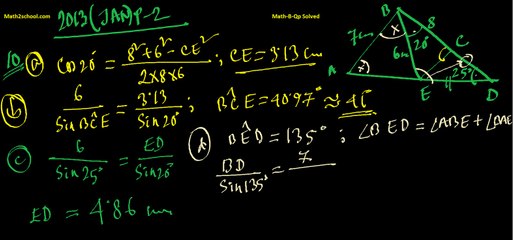 Math2school.com
2013(JAN)P-2
Math-B-Qp Solved
10. (a) Cos20° = 8²+6²-CE² / 2×8×6 ; CE = 3.13 cm
(b) 6 / Sin BĈE = 3.13 / Sin20° ; BĈE = 40.97° ≈ 41°
(c) 6 / Sin25° = ED / Sin20°
ED = 4.86 cm
(d) BÊD = 135° ; ∠BED = ∠ABE + ∠BAE
BD / Sin135° = 7 /
B
7cm
x
8
6m
20°
C
6
A
x
25°
E
4
D